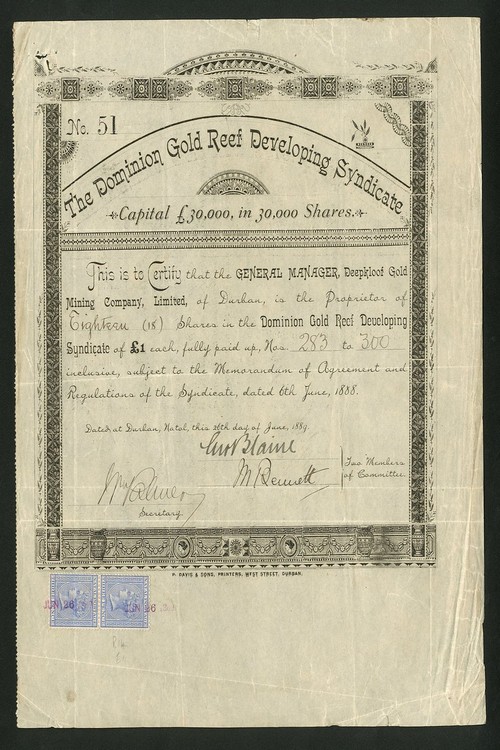 No. 51
The Dominion Gold Reef Developing Syndicate
Capital £30,000, in 30,000 Shares.
This is to Certify that the GENERAL MANAGER, Deepkloof Gold
Mining Company, Limited, of Durban, is the Proprietor of
Eighteen (18) Shares in the Dominion Gold Reef Developing
Syndicate of £1 each, fully paid up, Nos. 283 to 300
inclusive, subject to the Memorandum of Agreement and
Regulations of the Syndicate, dated 6th June, 1888.
Dated at Durban, Natal, this 26th day of June, 1889.
Geo Blaine
M Bennett
Two Members
of Committee.
Wm Palmer
Secretary
P. DAVIS & SONS, PRINTERS, WEST STREET, DURBAN.
JUN 26
JUN 26